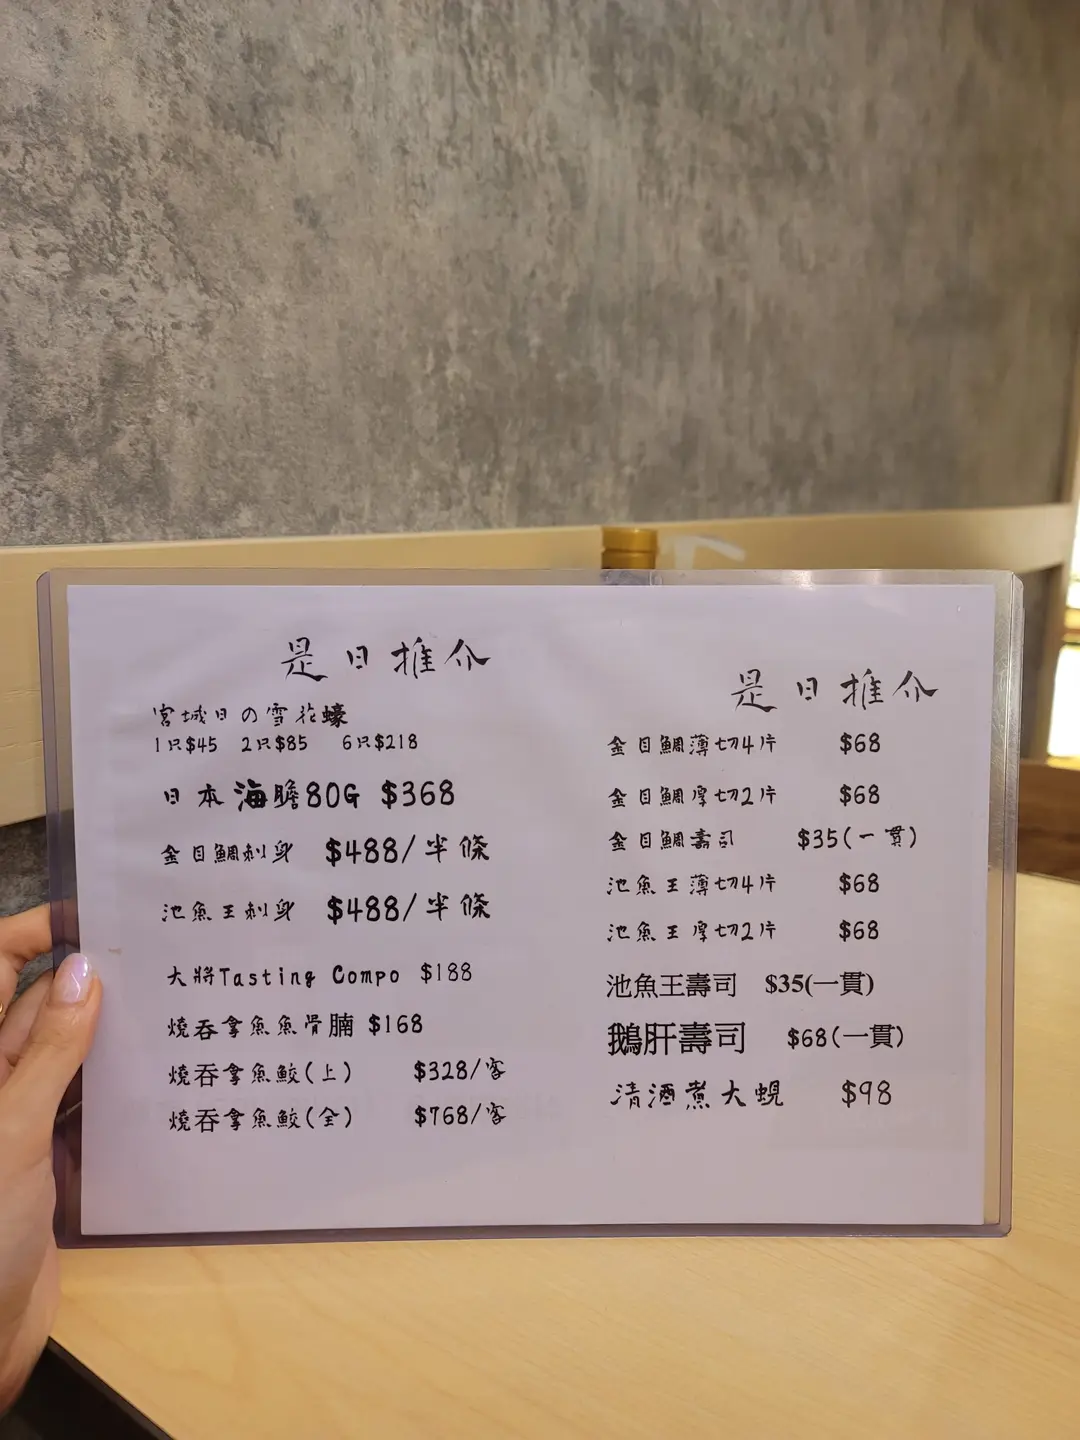 是日推介
宮城日の雪花蠔
1只$45 2只$85 6只$218
日本海膽80G $368
金目鯛刺身 $488/半條
池魚王刺身 $488/半條
大將Tasting Compo $188
燒吞拿魚魚骨腩 $168
燒吞拿魚鮫(上) $328/客
燒吞拿魚鮫(全) $768/客
是日推介
金目鯛薄切4片 $68
金目鯛厚切2片 $68
金目鯛壽司 $35(一貫)
池魚王薄切4片 $68
池魚王厚切2片 $68
池魚王壽司 $35(一貫)
鵝肝壽司 $68(一貫)
清酒煮大蜆 $98